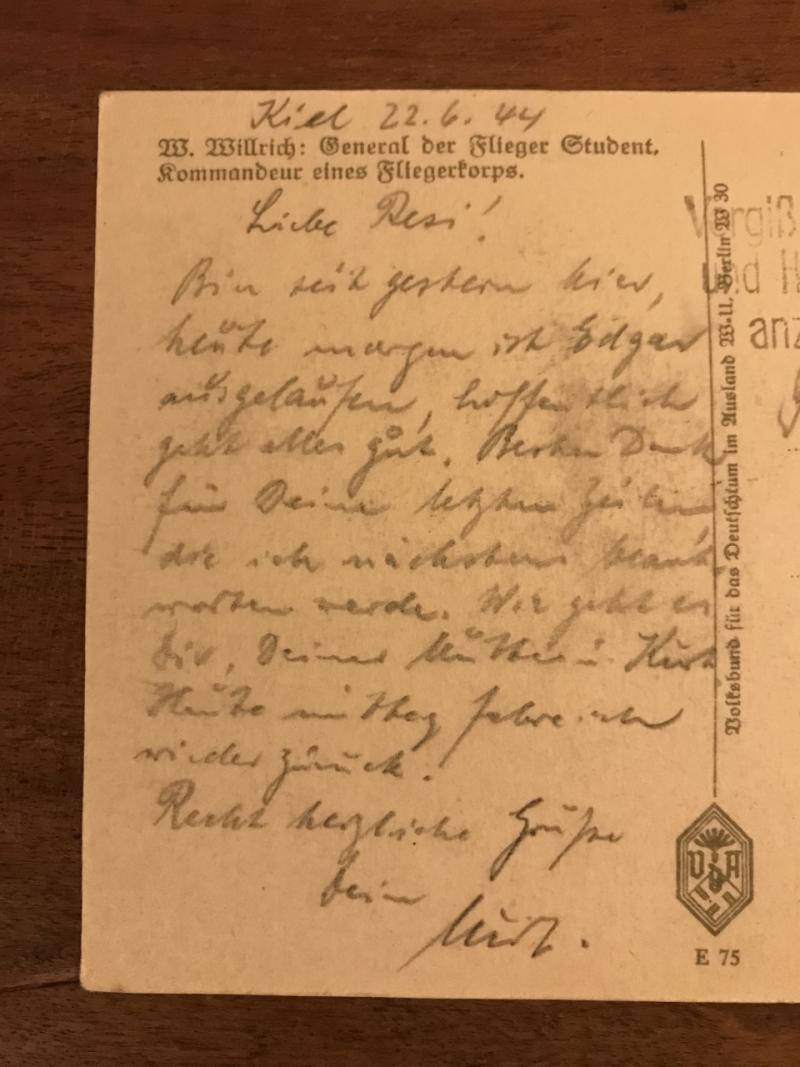 Kiel 22.6.44
W. Willrich: General der Flieger Student,
Kommandeur eines Fliegerkorps.
Liebe Resi!
Bin seit gestern hier,
heute morgen ist Edgar
ausgelaufen, hoffentlich
geht alles gut. Besten Dank
für Deine letzten Zeilen
die ich nächstens beant-
worten werde. Wie geht es
Dir, Deiner Mutter u. Kurt
Heute mittag fahre ich
wieder zurück.
Recht herzliche Grüße
Dein
Volksbund für das Deutschtum im Ausland W-U. Berlin W 30
Vergiß
und H
anz
VDA
E 75